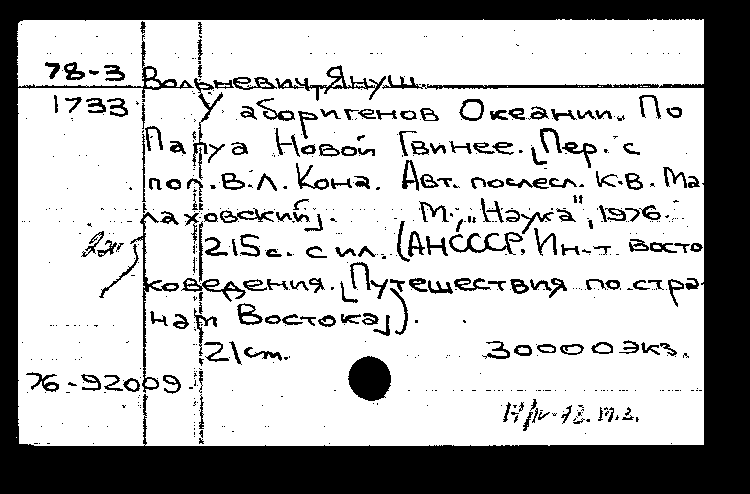 78-3 Вольневич, Януш
1733 У аборигенов Океании. По
Папуа Новой Гвинее. [Пер. с
пол. В.Л. Кона. Авт. послесл. К.В. Ма-
лаховский]. М., "Наука", 1976.
215 с. с ил. (АН СССР. Ин-т восто-
коведения. [Путешествия по стра-
нам Востока]).
21 cm. 30000 экз.
76-92009.